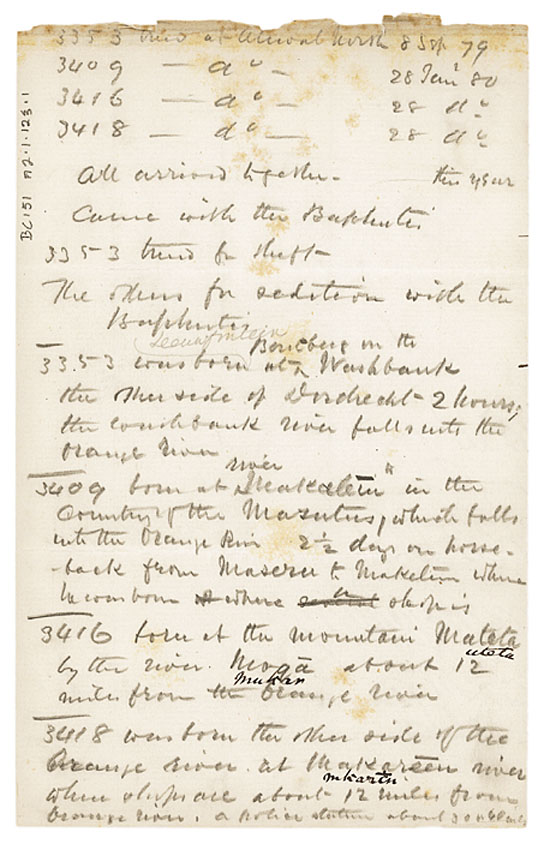 3353 tried at Aliwal North 8 Sep 79
3409 — do — 28 Jan 80
3416 — do — 28 do
3418 — do — 28 do
All arrived together - this year
Came with the Baphutis
3353 tried for theft
The others for sedition with the
Baphutis
Leeuwfontein
Bensberg on the
3353 was born at Washbank
the other side of Dordrecht - 2 hours,
the washbank river falls into the
Orange river
river
3409 born at Makalein in the
Country of the Masutus, which falls
into the Orange River 2½ days on horse-
-back from Maseru to Makelein where
he was born where a shop is
3416 born at the mountain Mateta
uteta
by the river Moga about 12
mukan
miles from the Orange river
3418 was born the other side of the
Orange river at Makareen river
mkartin
where shops are about 12 miles from
Orange river, a police station about 300
BC 151 A2.1.123.1